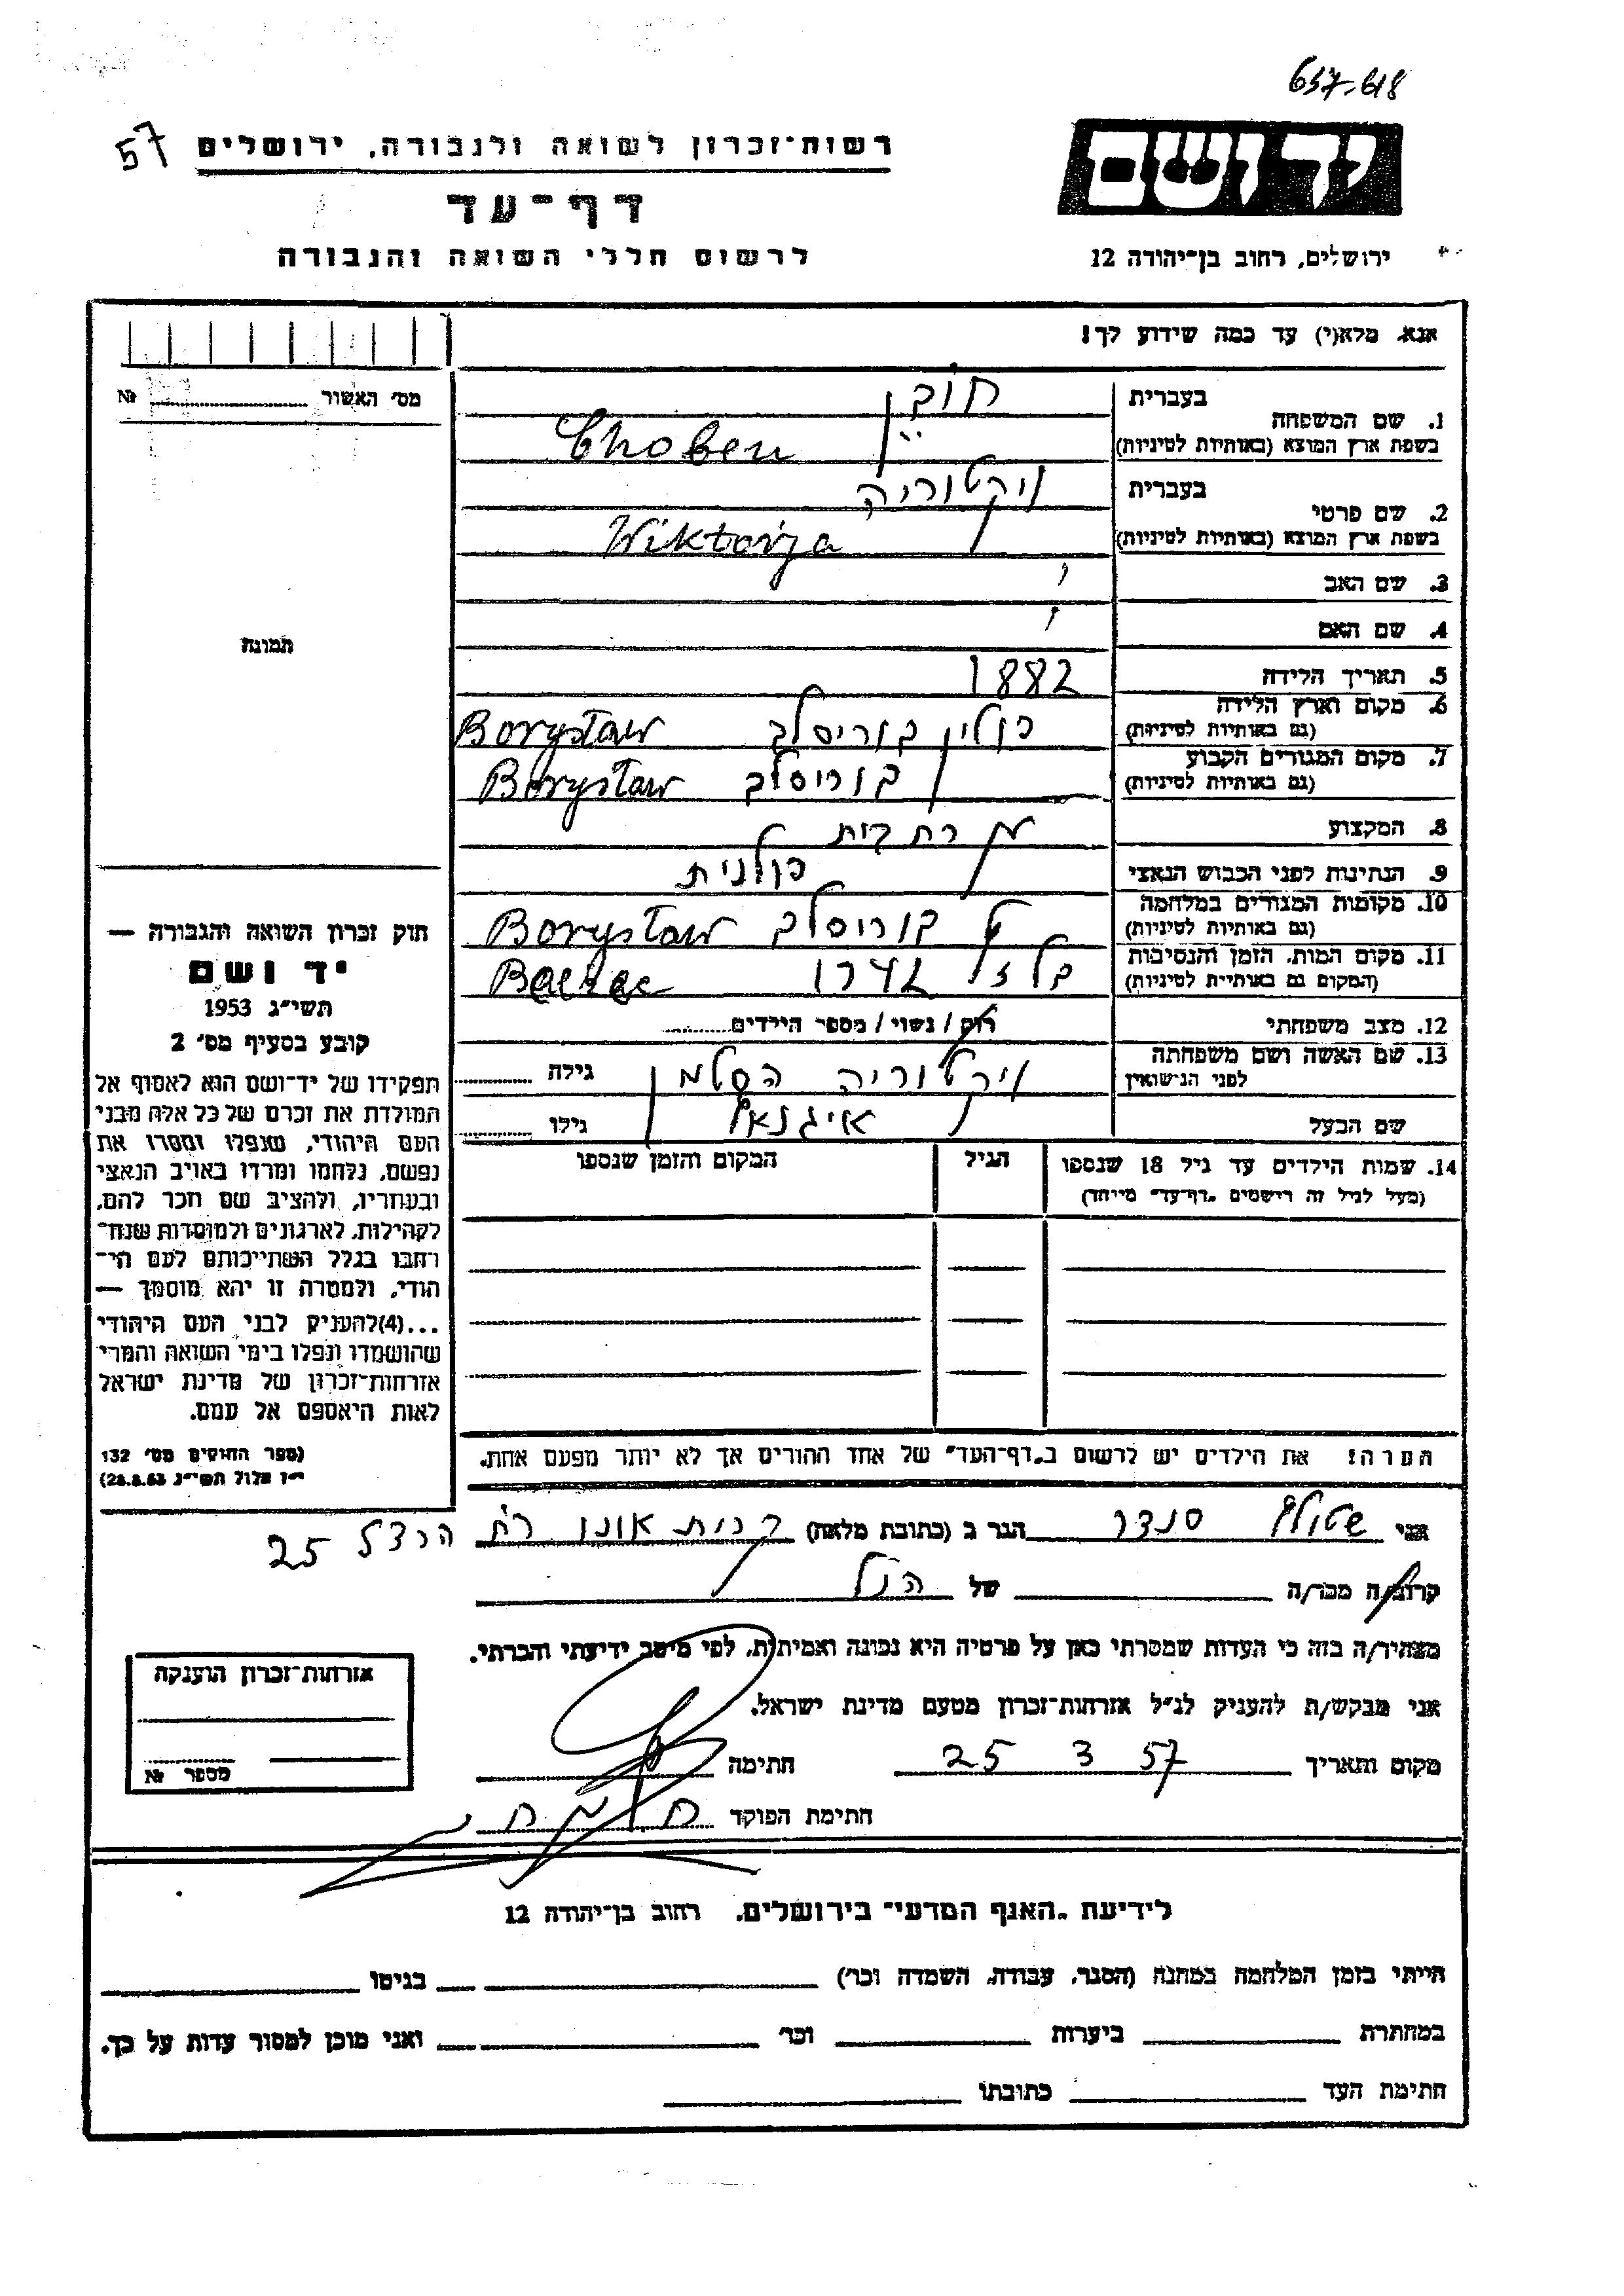 657.618
57
רשות-זכרון לשואה ולגבורה, ירושלים
יד ושם
דף-עד
לרשום חללי השואה והגבורה
ירושלים, רחוב בן-יהודה 12
אנא, מלא(י) עד כמה שידוע לך!
מס' האשור № 
1. שם המשפחה בעברית חובן
בשפת ארץ המוצא (באותיות לטיניות) Choben
2. שם פרטי בעברית ויקטוריה
בשפת ארץ המוצא (באותיות לטיניות) Wiktorja
3. שם האב
4. שם האם
תמונה
5. תאריך הלידה 1882
6. מקום וארץ הלידה (גם באותיות לטיניות) פולין בוריסלב Borysław
7. מקום המגורים הקבוע (גם באותיות לטיניות) בוריסלב Borysław
8. המקצוע
9. הנתינות לפני הכבוש הנאצי פולנית
10. מקומות המגורים במלחמה (גם באותיות לטיניות) בוריסלב Borysław
11. מקום המות, הזמן והנסיבות (המקום גם באותיות לטיניות) בלזץ 1942
12. מצב משפחתי רווק / נשוי / מספר הילדים
13. שם האשה ושם משפחתה לפני הנישואין ויקטוריה הסלמן גילה
שם הבעל איגנאץ גילו
14. שמות הילדים עד גיל 18 שנספו הגיל המקום והזמן שנספו
(מעל לגיל זה רושמים "דף-עד" מיוחד)
חוק זכרון השואה והגבורה —
יד ושם
תשי"ג 1953
קובע בסעיף מס' 2
תפקידו של יד-ושם הוא לאסוף אל
המולדת את זכרם של כל אלה מבני
העם היהודי, שנפלו ומסרו את
נפשם, נלחמו ומרדו באויב הנאצי
ובעוזריו, ולהציב שם וזכר להם,
לקהילות, לארגונים ולמוסדות שנח-
רבו בגלל השתייכותם לעם הי-
הודי, ולמטרה זו יהא מוסמך —
...(4) להעניק לבני העם היהודי
שהושמדו ונפלו בימי השואה והמרי
אזרחות-זכרון של מדינת ישראל
לאות היאספם אל עמם.
(ספר החוקים מס' 132
י"ז אלול תשי"ג 28.8.53)
הערה! את הילדים יש לרשום ב"דף-העד" של אחד ההורים אך לא יותר מפעם אחת.
אני סנדר הגר ב (כתובת מלאה) קרית אונו רח הרצל 25
קרוב/ה מכר/ה של הנ"ל
מצהיר/ה בזה כי העדות שמסרתי כאן על פרטיה היא נכונה ואמיתית, לפי מיטב ידיעתי והכרתי.
אני מבקש/ת להעניק לנ"ל אזרחות-זכרון מטעם מדינת ישראל.
מקום ותאריך 25 3 57 חתימה
חתימת הפוקד
אזרחות-זכרון הוענקה
מספר №
לידיעת "האגף המדעי" בירושלים. רחוב בן-יהודה 12
הייתי בזמן המלחמה במחנה (הסגר, עבודה, השמדה וכו') בגיטו
במחתרת ביערות וכו' ואני מוכן למסור עדות על כך.
חתימת העד כתובתו